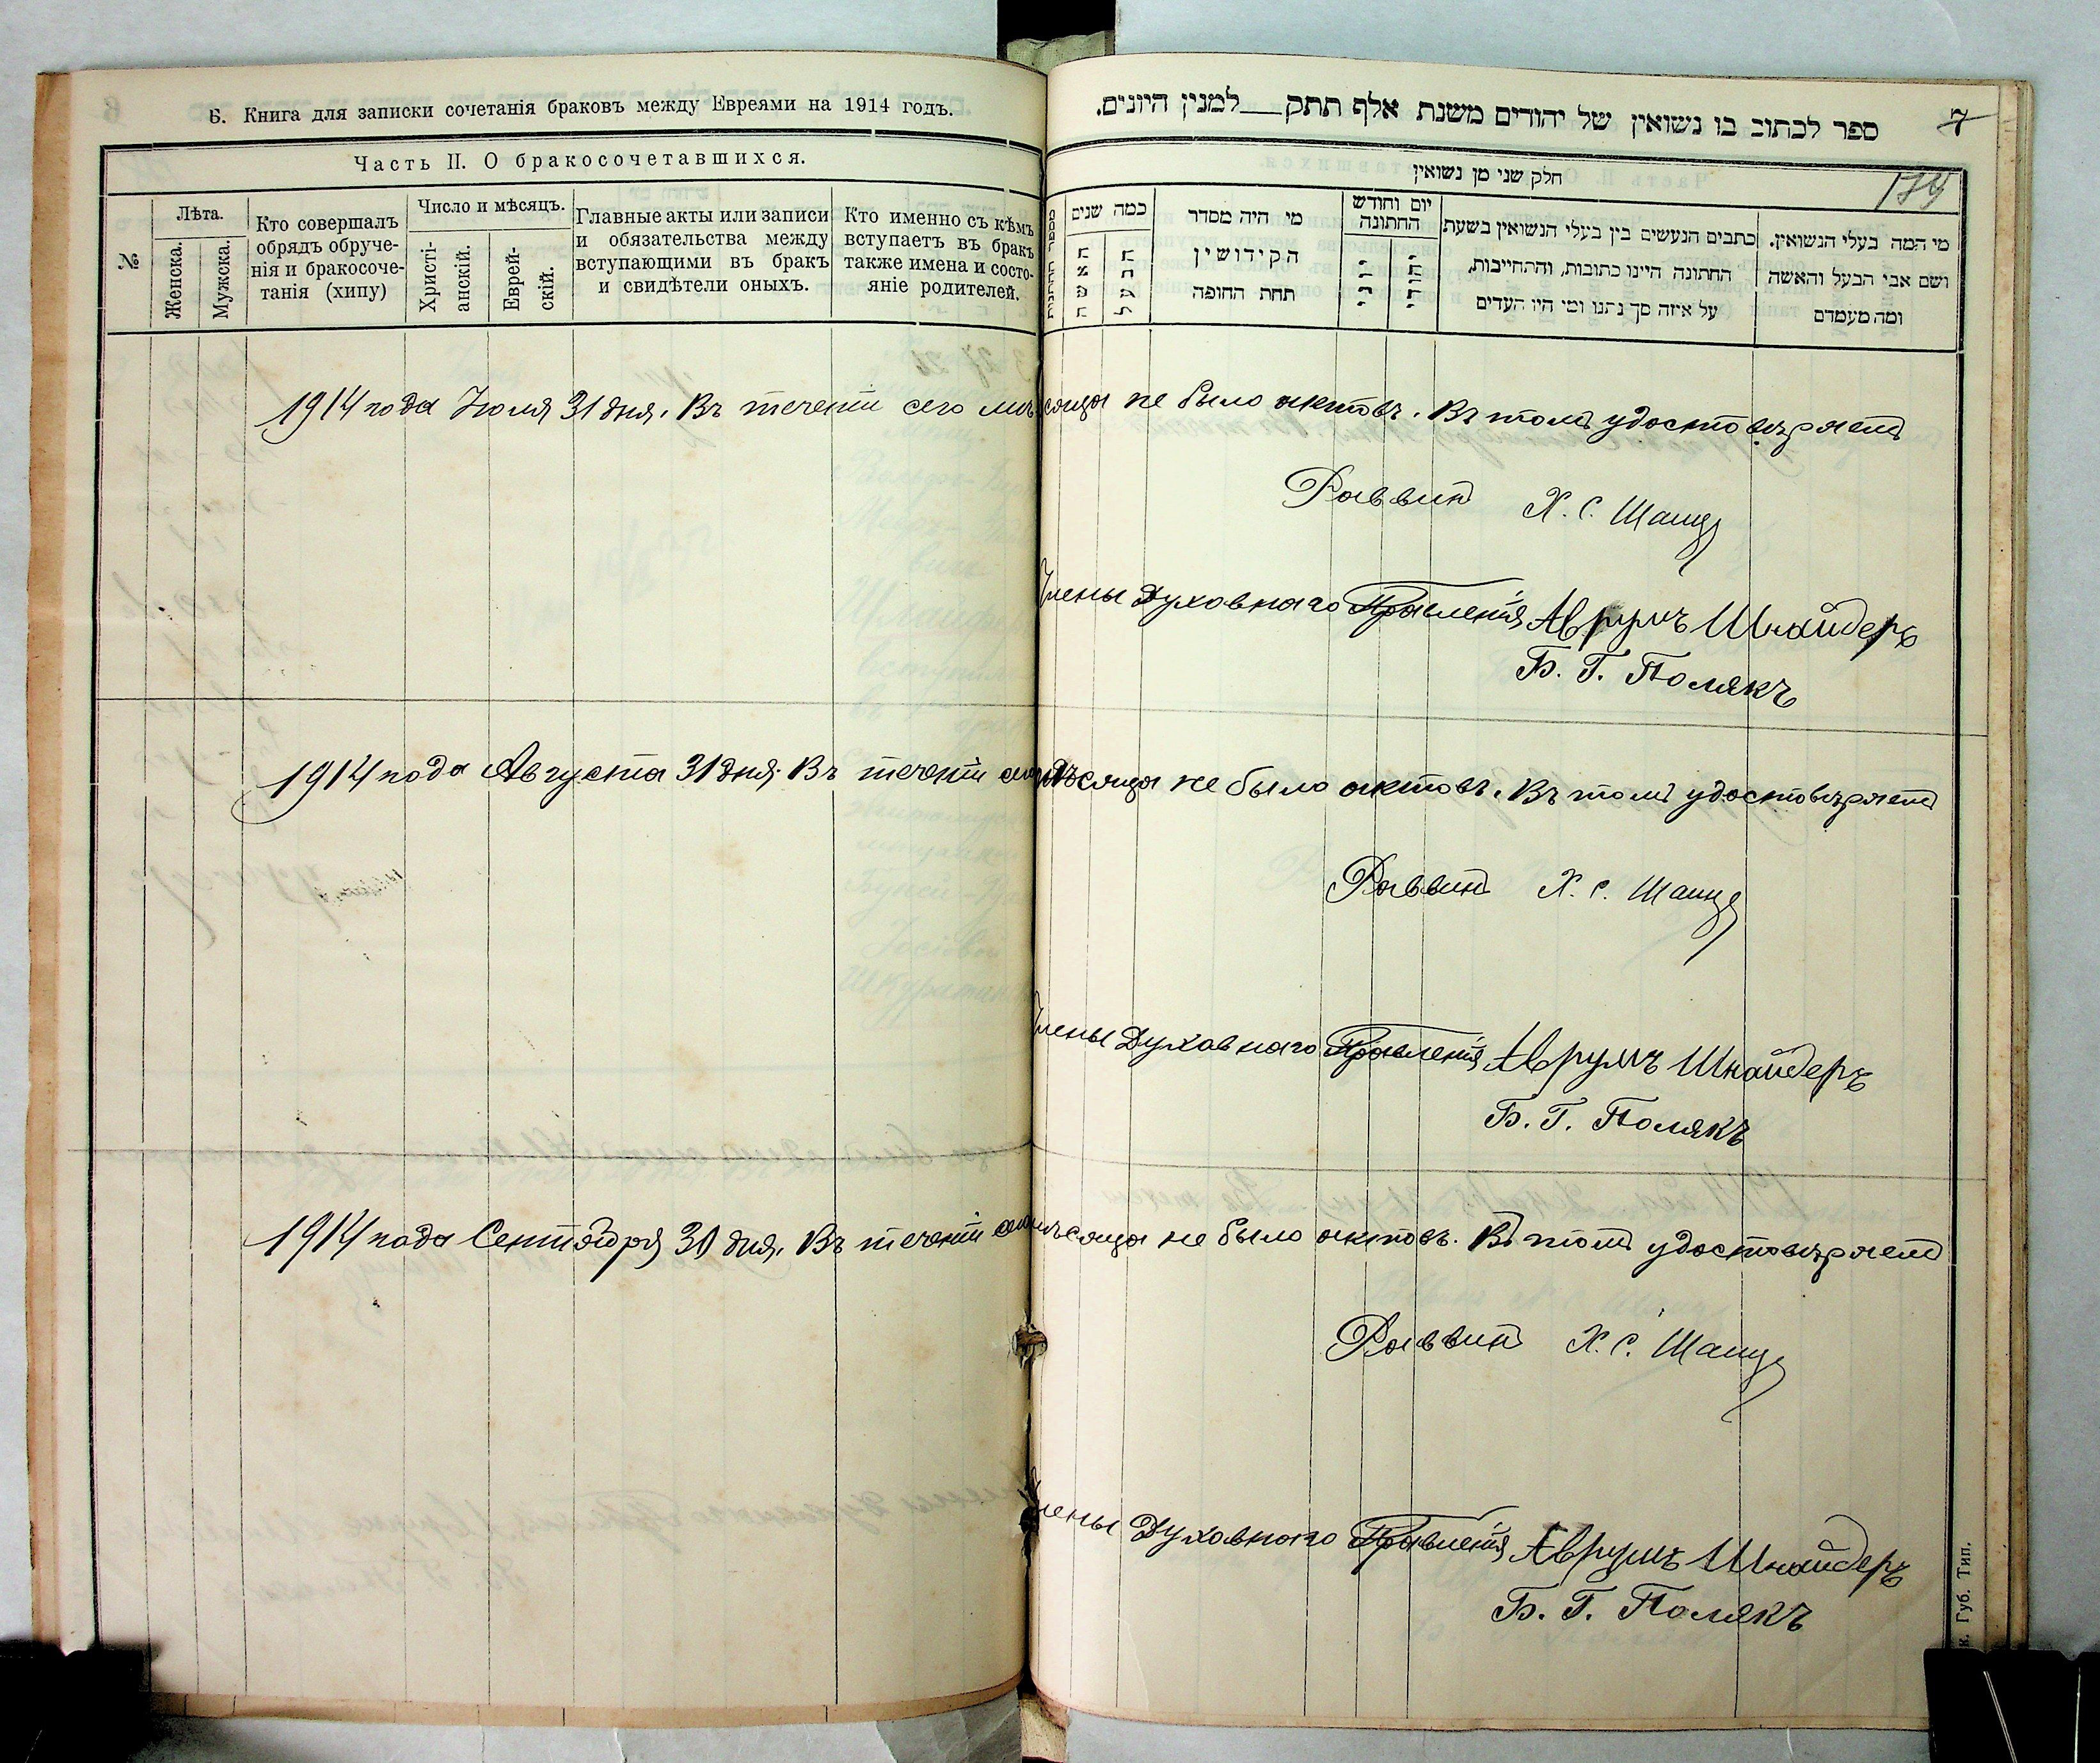 Б. Книга для записки сочетанія браковъ между Евреями на 1914 годъ.
Часть II. О бракосочетавшихся.
№
Лѣта.
Женска.
Мужска.
Кто совершалъ
обрядъ обруче-
нія и бракосоче-
танія (хипу)
Число и мѣсяцъ.
Христі-
анскій.
Еврей-
скій.
Главные акты или записи
и обязательства между
вступающими въ бракъ
и свидѣтели оныхъ.
Кто именно съ кѣмъ
вступаетъ въ бракъ
также имена и состо-
яніе родителей.
ספר לכתוב בו נשואין של יהודים משנת אלף תתק למנין היונים.
7
חלק שני מן נשואין
כמה שנים
האשה
הבעל
מי היה מסדר
הקידושין
תחת החופה
יום וחודש
החתונה
יוני
יהודי
כתבים הנעשים בין בעלי הנשואין בשעת
החתונה היינו כתובות, והתחייבות,
על איזה סך נתנו ומי היו העדים
מי המה בעלי הנשואין.
ושם אבי הבעל והאשה
ומה מעמדם
1914 года Іюля 31 дня. Въ теченіи сего мѣсяца не было актовъ. Въ томъ удостовѣряетъ
Раввинъ Х. С. Шанц
Члены Духовнаго Правленія Аврумъ Шнайдеръ
Б. Г. Полякъ
1914 года Августа 31 дня. Въ теченіи сего мѣсяца не было актовъ. Въ томъ удостовѣряетъ
Раввинъ Х. С. Шанц
Члены Духовнаго Правленія Аврумъ Шнайдеръ
Б. Г. Полякъ
1914 года Сентября 30 дня. Въ теченіи сего мѣсяца не было актовъ. Въ томъ удостовѣряетъ
Раввинъ Х. С. Шанц
Члены Духовнаго Правленія Аврумъ Шнайдеръ
Б. Г. Полякъ
Губ. Тип.